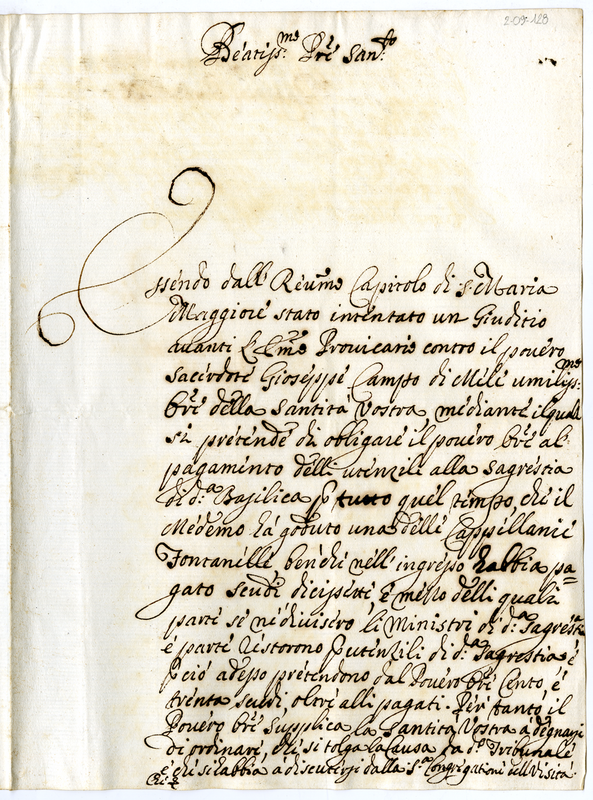 2-09-128
Beatiss.mo Pre San.to
Essendo dall Reumo Capitolo di S. Maria
Maggiore stato intentato un Giuditio
auanti l'Emo Prouicario contro il pouero
Sacerdote Gioseppe Campo di Mele umiliss:mo
Ore della Santità Vostra mediante il quale
si pretende di obligare il pouero Ore al
pagamento delli utenzili alla Sagrestia
di d.a Basilica p tutto quel tempo, che il
Medemo hà goduto una delle Cappellanie
Fontanelle, benche nell'ingresso habbia pa=
gato scudi diecisette e mezzo delli quali
parte se ne diuisero li Ministri di d.a Sagrestia
e parte restorono p utenzili di d.a Sagrestia e
p ciò adesso pretendono dal Pouero Ore Cento e
trenta scudi, oltre alli pagati. Per tanto il
Pouero Ore Supplica la Santità Vostra à degnarsi
di ordinare, che si tolga la Causa da d.o Tribunale
e che si habbia à discutersi dalla S.a Congregatione della Visita.
Che